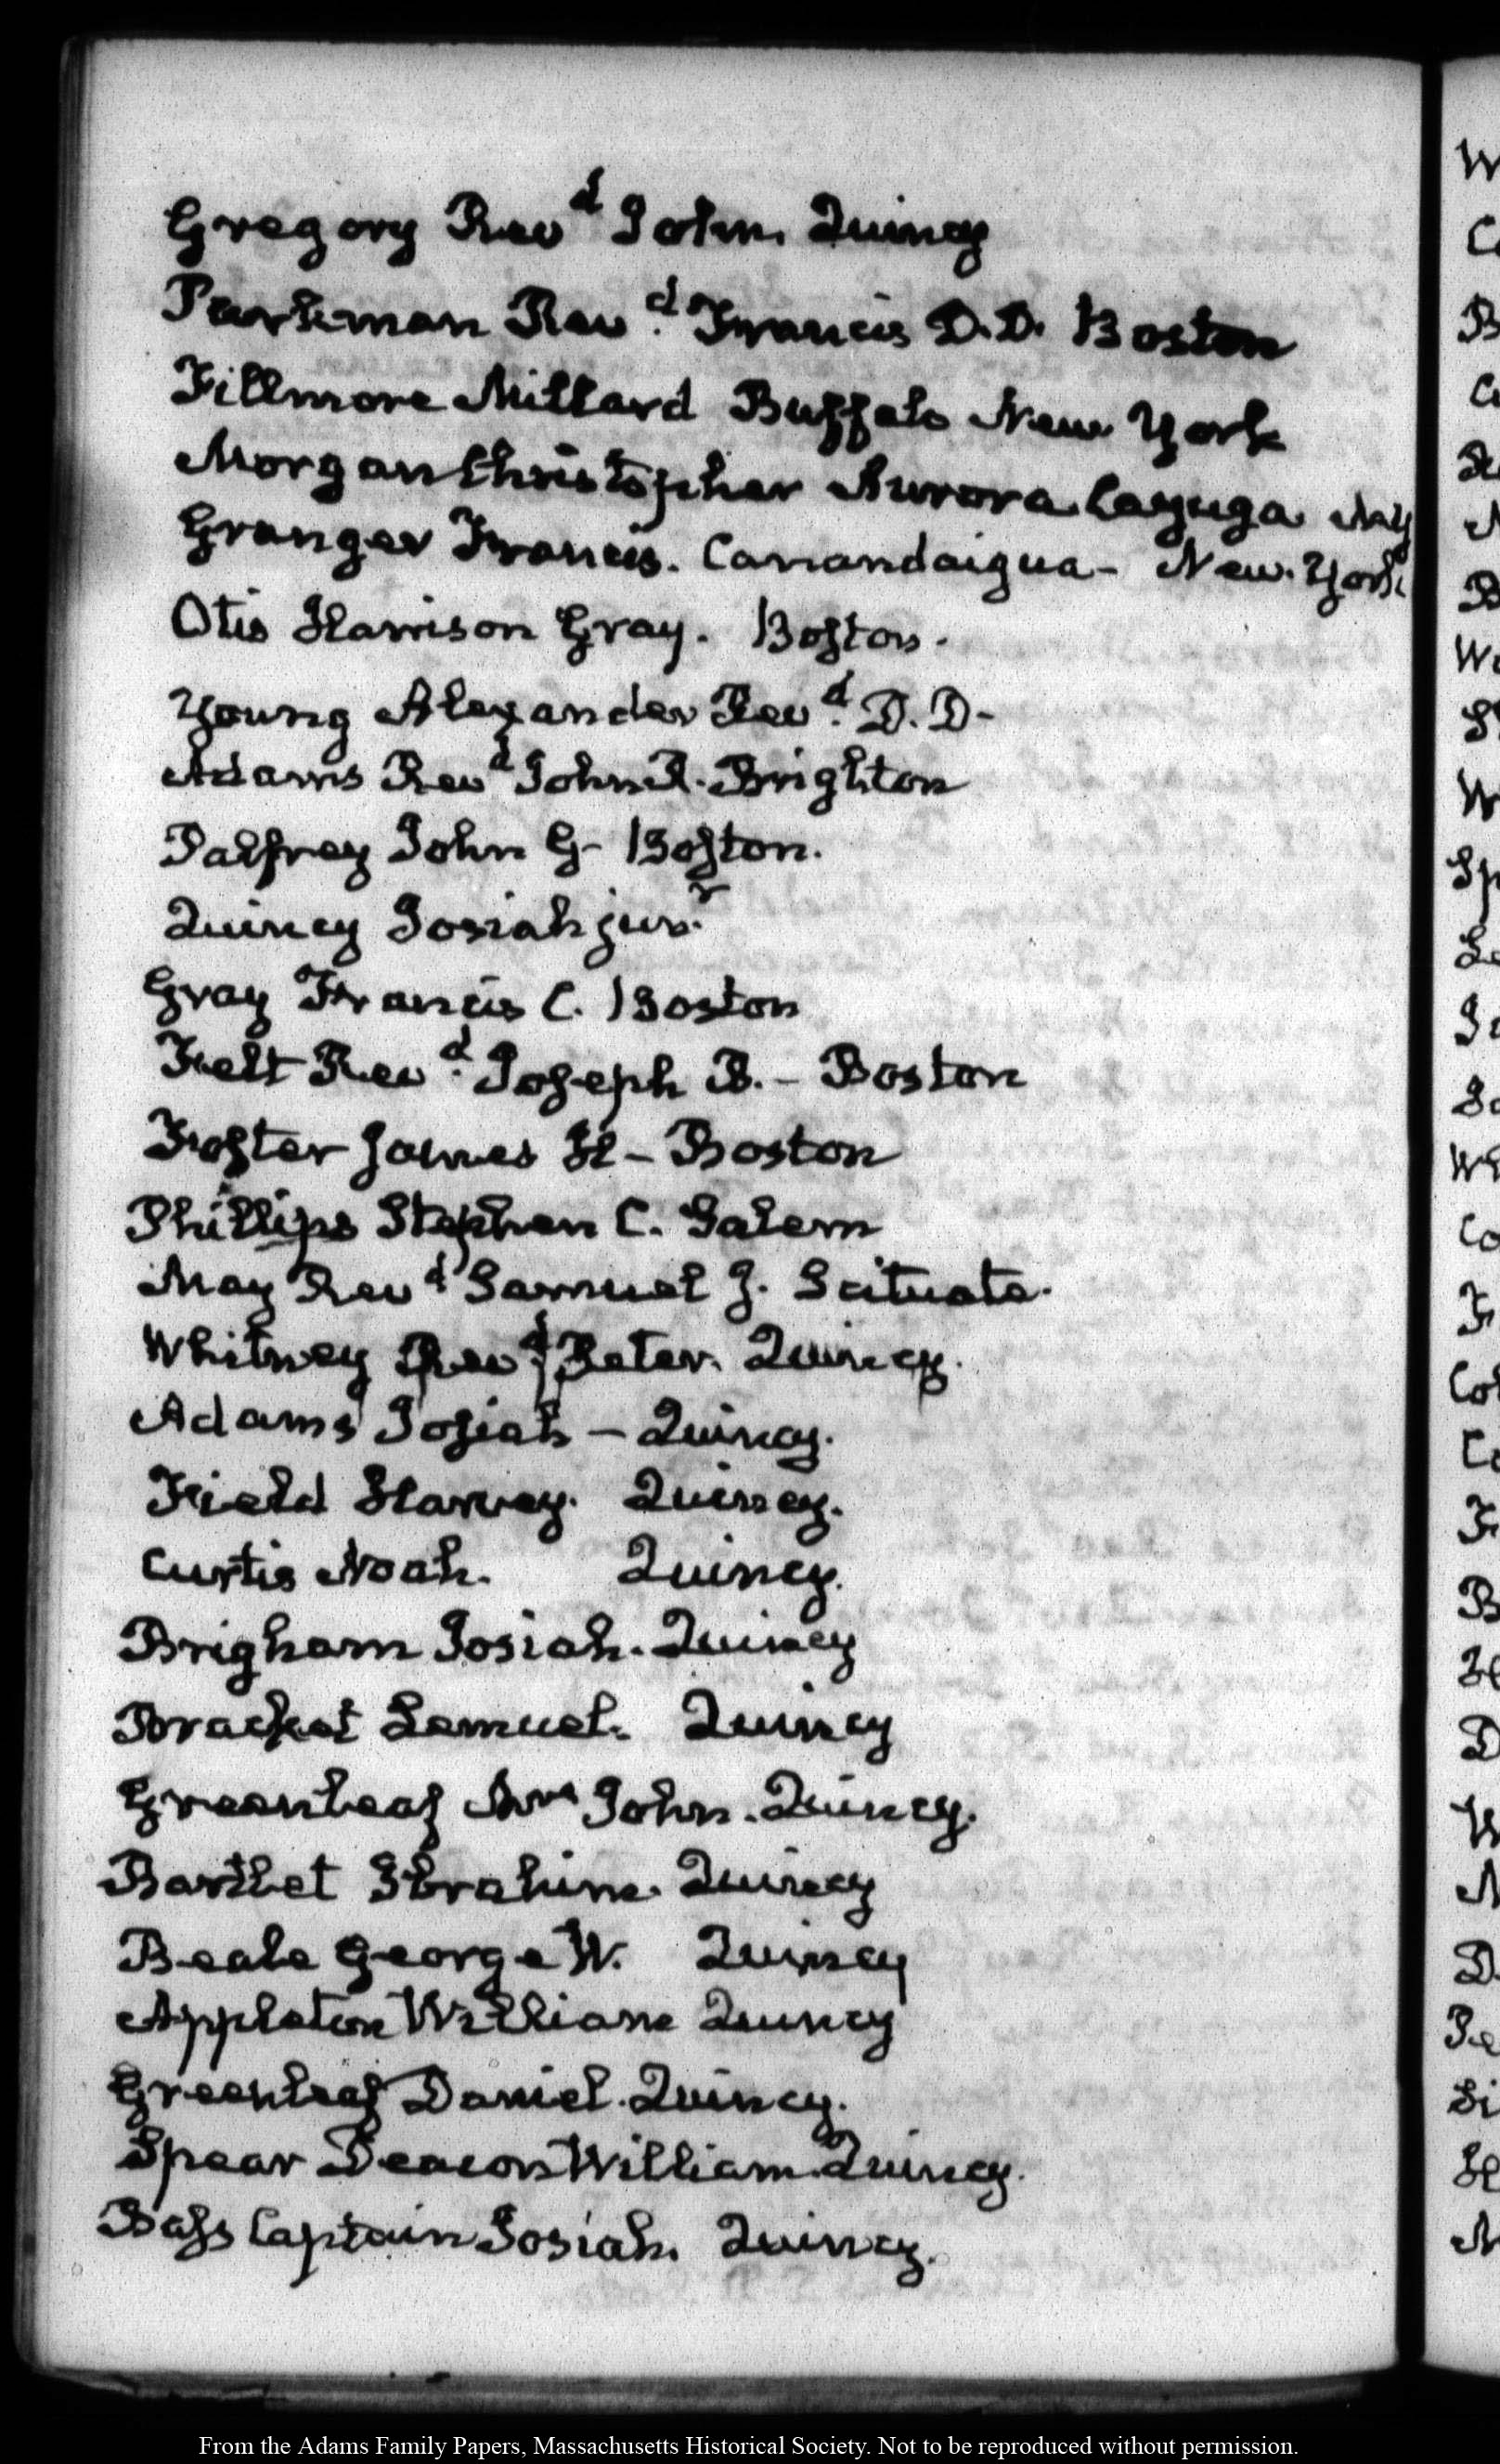 Gregory Revd John. Quincy
Parkman Revd. Francis D.D. Boston
Fillmore Millard Buffalo New York
Morgan Christopher Aurora Cayuga N.Y
Granger Francis. Canandaigua - New York
Otis Harrison Gray. Boston.
Young Alexander Revd. D.D-
Adams Revd John R. Brighton
Palfrey John G- Boston.
Quincy Josiah junr.
Gray Francis C. Boston
Felt Revd. Joseph B. - Boston
Foster James H - Boston
Phillips Stephen C. Salem
May Revd Samuel J. Scituate.
Whitney Revd Peter. Quincy.
Adams Josiah - Quincy.
Field Harvey. Quincy.
Curtis Noah. Quincy.
Brigham Josiah. Quincy
Bracket Lemuel. Quincy
Greenleaf Mrs John. Quincy.
Bartlet Ibrahim. Quincy
Beale George W. Quincy
Appleton William Quincy
Greenleaf Daniel. Quincy.
Spear Deacon William. Quincy.
Bass Captain Josiah. Quincy.
From the Adams Family Papers, Massachusetts Historical Society. Not to be reproduced without permission.